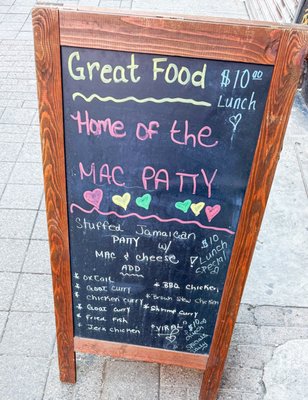 Great Food
$10.00
Lunch
Home of the
MAC PATTY
Stuffed Jamaican
PATTY w/
MAC & cheese
ADD
$10
Lunch
Special
* Oxtail
* Goat Curry
* chicken curry
* Goat Curry
* fried fish
* Jerk chicken
* BBQ chicken
* Brown Stew chicken
* Shrimp Curry
*VIRAL*
$10
Lunch
Specials